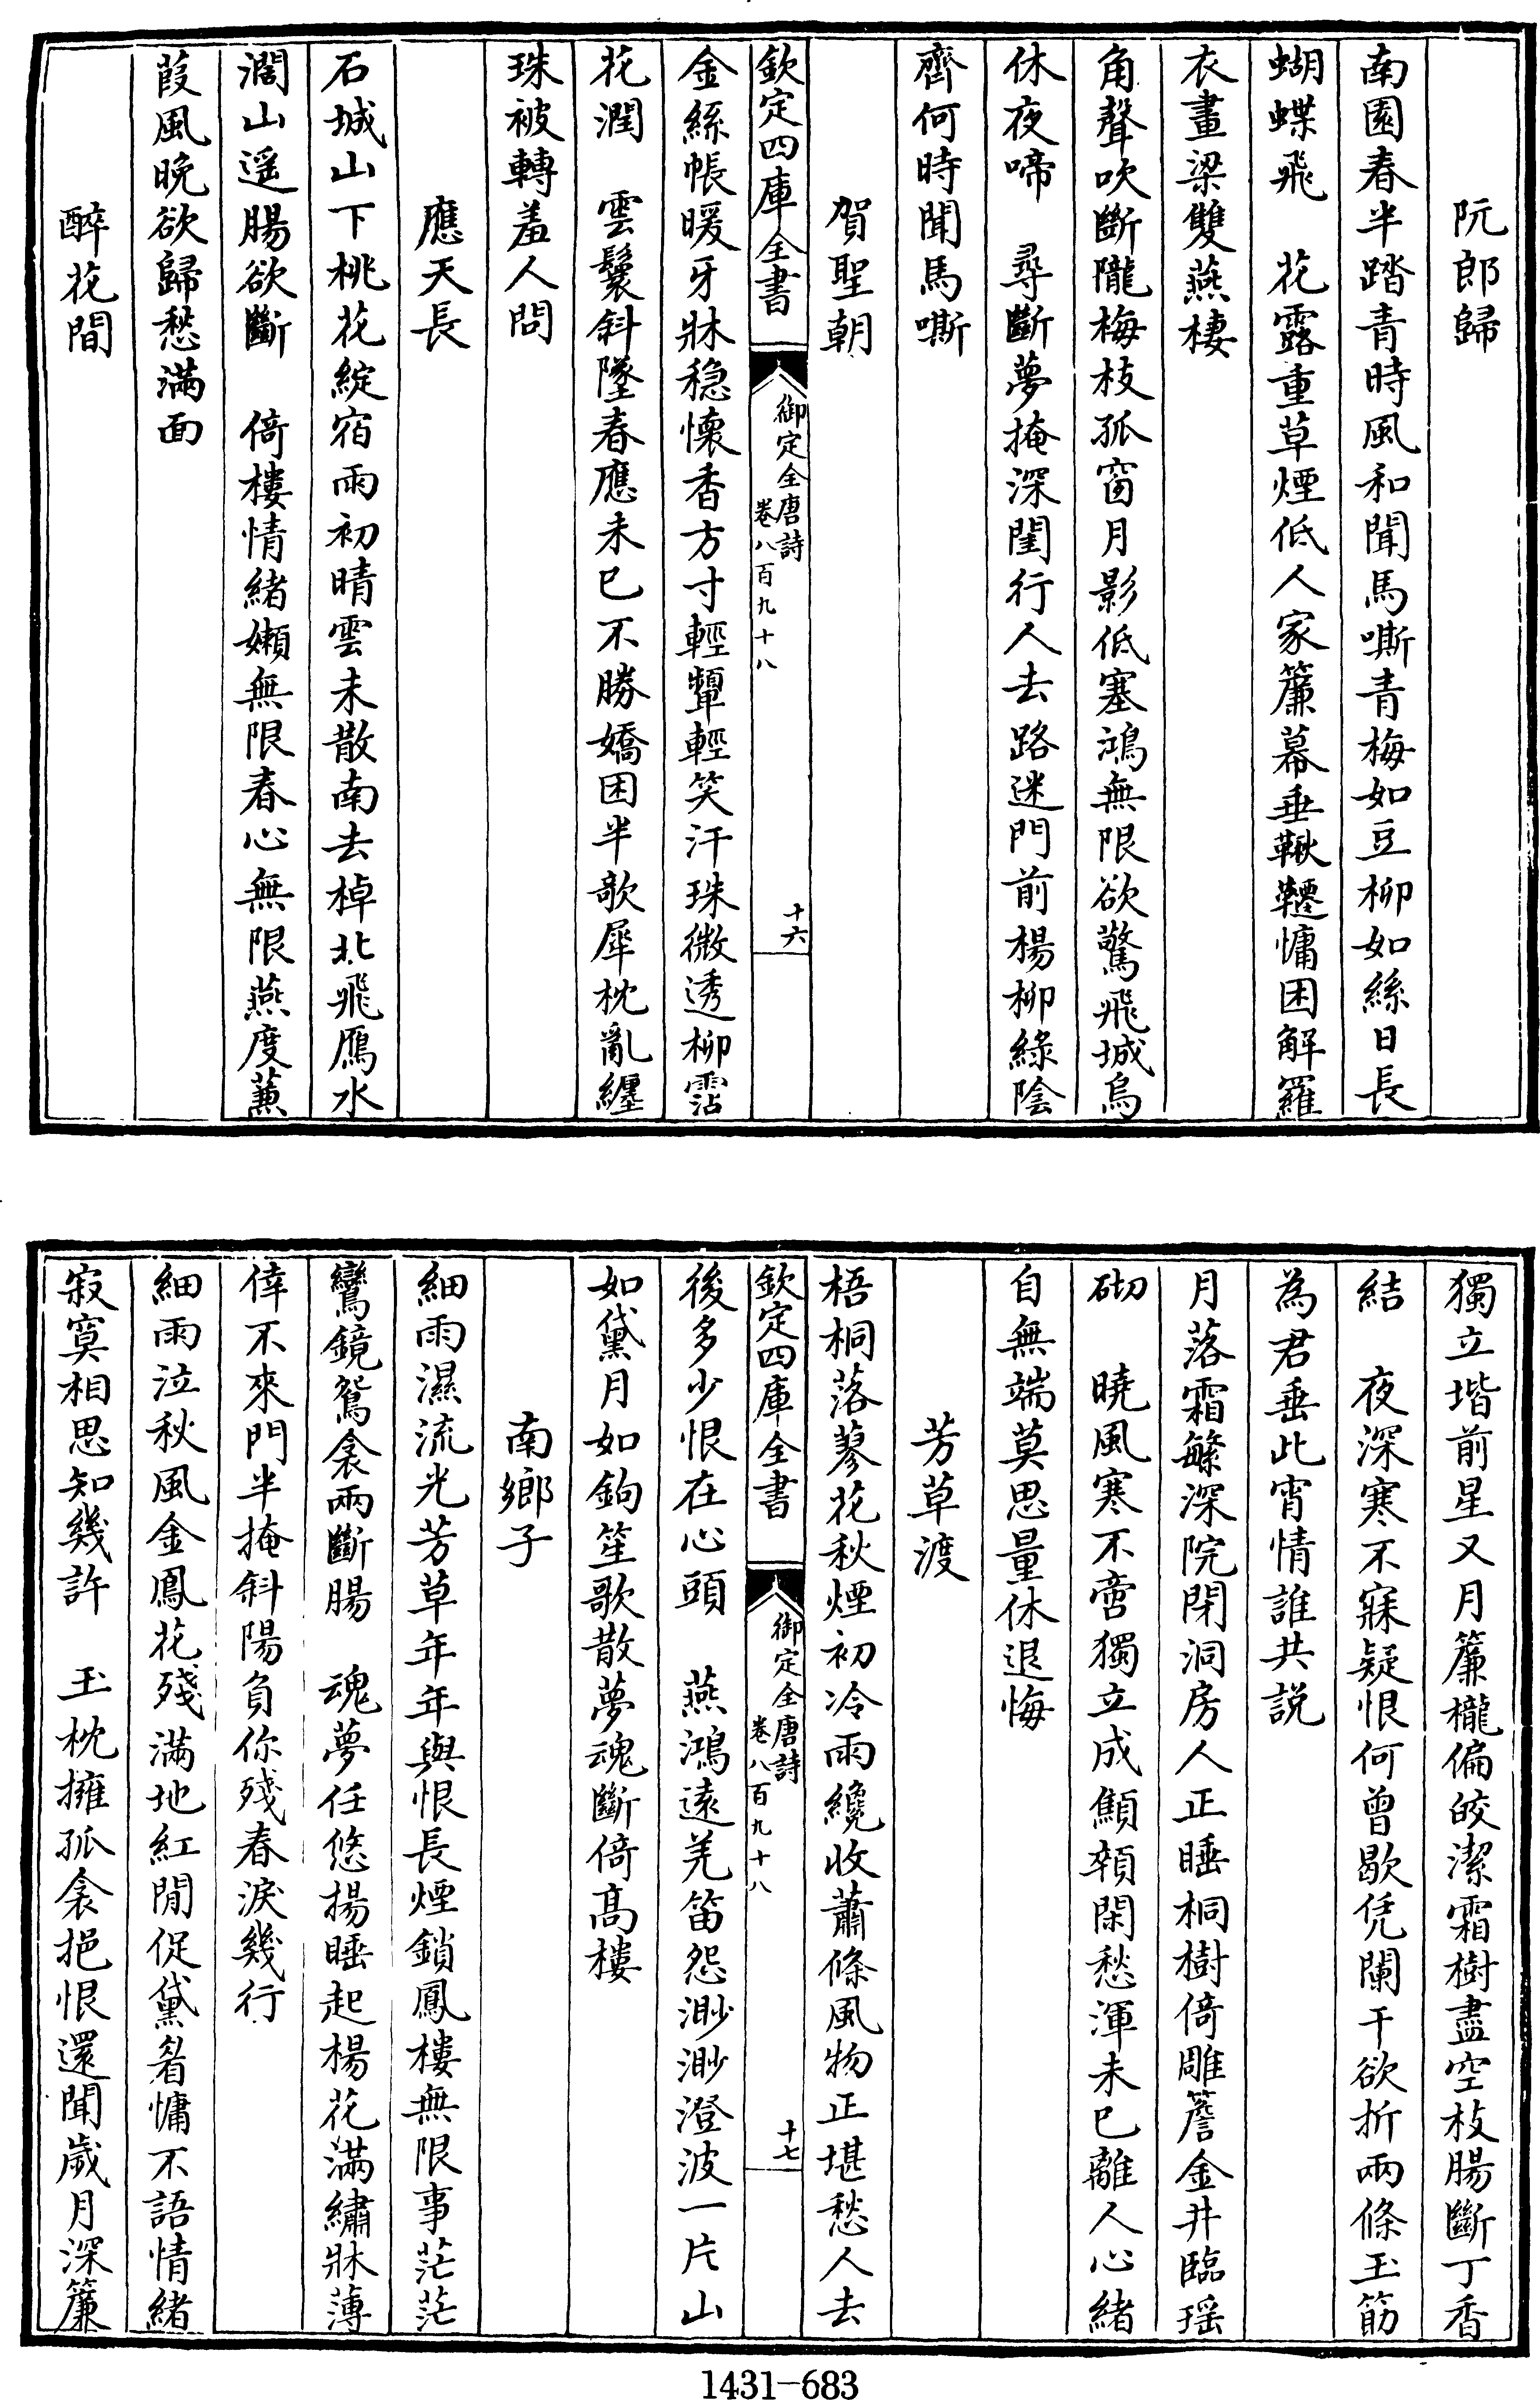 阮郎歸
南園春半踏青時風和聞馬嘶青梅如豆柳如絲日長
蝴蝶飛　花露重草煙低人家簾幕垂鞦韆慵困解羅
衣畫梁雙燕棲
角聲吹斷隴梅枝孤窗月影低塞鴻無限欲驚飛城烏
休夜啼　尋斷夢掩深閨行人去路迷門前楊柳綠陰
齊何時聞馬嘶
賀聖朝
欽定四庫全書
御定全唐詩
卷八百九十八
十六
金絲帳暖牙牀穩懷香方寸輕顰輕笑汗珠微透柳霑
花潤　雲鬟斜墜春應未已不勝嬌困半欹犀枕亂纏
珠被轉羞人問
應天長
石城山下桃花綻宿雨初晴雲未散南去棹北飛鴈水
濶山遥腸欲斷　倚樓情緒嬾無限春心無限燕度蒹
葭風晚欲歸愁滿面
醉花間
獨立堦前星又月簾櫳偏皎潔霜樹盡空枝腸斷丁香
結　夜深寒不寐疑恨何曾歇凭闌干欲折兩條玉筯
為君垂此宵情誰共説
月落霜繁深院閉洞房人正睡桐樹倚雕簷金井臨瑶
砌　曉風寒不啻獨立成顦顇閑愁渾未已離人心緒
自無端莫思量休退悔
芳草渡
梧桐落蓼花秋煙初冷雨纔收蕭條風物正堪愁人去
後多少恨在心頭　燕鴻遠羌笛怨渺渺澄波一片山
如黛月如鉤笙歌散夢魂斷倚髙樓
欽定四庫全書
御定全唐詩
卷八百九十八
十七
南鄉子
細雨濕流光芳草年年與恨長煙鎖鳳樓無限事茫茫
鸞鏡鴛衾兩斷腸　魂夢任悠揚睡起楊花滿繡牀薄
倖不來門半掩斜陽負你殘春淚幾行
細雨泣秋風金鳳花殘滿地紅閒促黛眉慵不語情緒
寂寞相思知幾許　玉枕擁孤衾挹恨還聞歲月深簾
1431-683